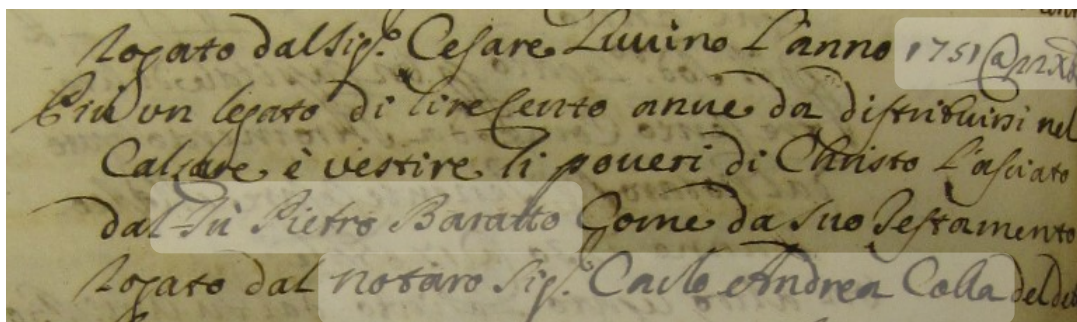 Rogato dal Sig.r Cesare Luuino L'anno 1751
Più un legato di lire Cento anue da distribuirsi nel
Calzare è vestire li poueri di Christo Lasciato
dal Fù Pietro Baratto Come da suo Testamento
Rogato dal notaro Sig.r Carlo Andrea Colla del